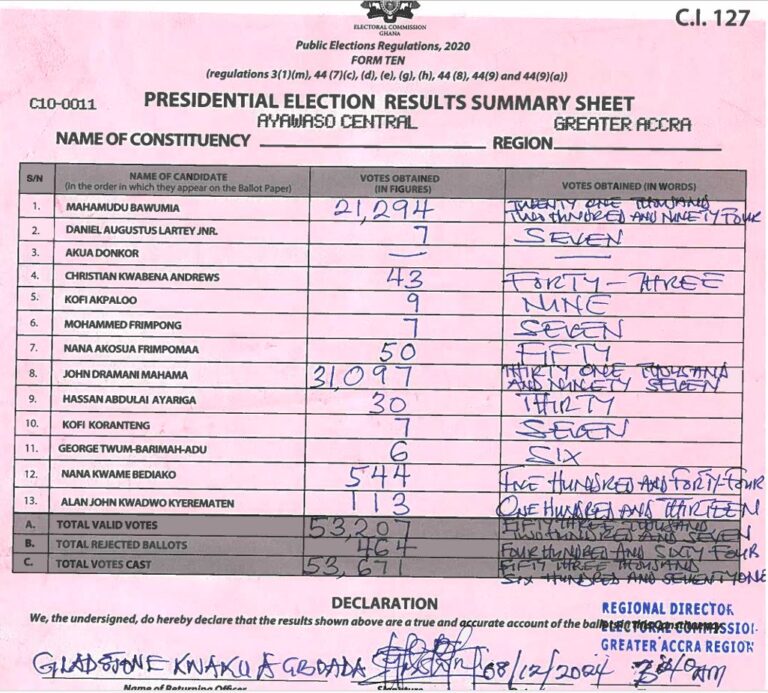 ELECTORAL COMMISSION
GHANA
C.I. 127
Public Elections Regulations, 2020
FORM TEN
(regulations 3(1)(m), 44 (7)(c), (d), (e), (g), (h), 44 (8), 44(9) and 44(9)(a))
C10-0011 PRESIDENTIAL ELECTION RESULTS SUMMARY SHEET
NAME OF CONSTITUENCY AYAWASO CENTRAL REGION GREATER ACCRA
S/N NAME OF CANDIDATE (In the order in which they appear on the Ballot Paper) VOTES OBTAINED (IN FIGURES) VOTES OBTAINED (IN WORDS)
1. MAHAMUDU BAWUMIA 21,294 TWENTY ONE THOUSAND TWO HUNDRED AND NINETY FOUR
2. DANIEL AUGUSTUS LARTEY JNR. 7 SEVEN
3. AKUA DONKOR — —
4. CHRISTIAN KWABENA ANDREWS 43 FORTY-THREE
5. KOFI AKPALOO 9 NINE
6. MOHAMMED FRIMPONG 7 SEVEN
7. NANA AKOSUA FRIMPOMAA 50 FIFTY
8. JOHN DRAMANI MAHAMA 31,097 THIRTY ONE THOUSAND AND NINETY SEVEN
9. HASSAN ABDULAI AYARIGA 30 THIRTY
10. KOFI KORANTENG 7 SEVEN
11. GEORGE TWUM-BARIMAH-ADU 6 SIX
12. NANA KWAME BEDIAKO 544 FIVE HUNDRED AND FORTY-FOUR
13. ALAN JOHN KWADWO KYEREMATEN 113 ONE HUNDRED AND THIRTEEN
A. TOTAL VALID VOTES 53,207 FIFTY THREE THOUSAND TWO HUNDRED AND SEVEN
B. TOTAL REJECTED BALLOTS 464 FOUR HUNDRED AND SIXTY FOUR
C. TOTAL VOTES CAST 53,671 FIFTY THREE THOUSAND SIX HUNDRED AND SEVENTY ONE
DECLARATION
We, the undersigned, do hereby declare that the results shown above are a true and accurate account of the ballots in this Constituency
REGIONAL DIRECTOR
ELECTORAL COMMISSION
GREATER ACCRA REGION
GLADSTONE KWAKU 08/12/2024 AM
Name of Returning Officer Signature